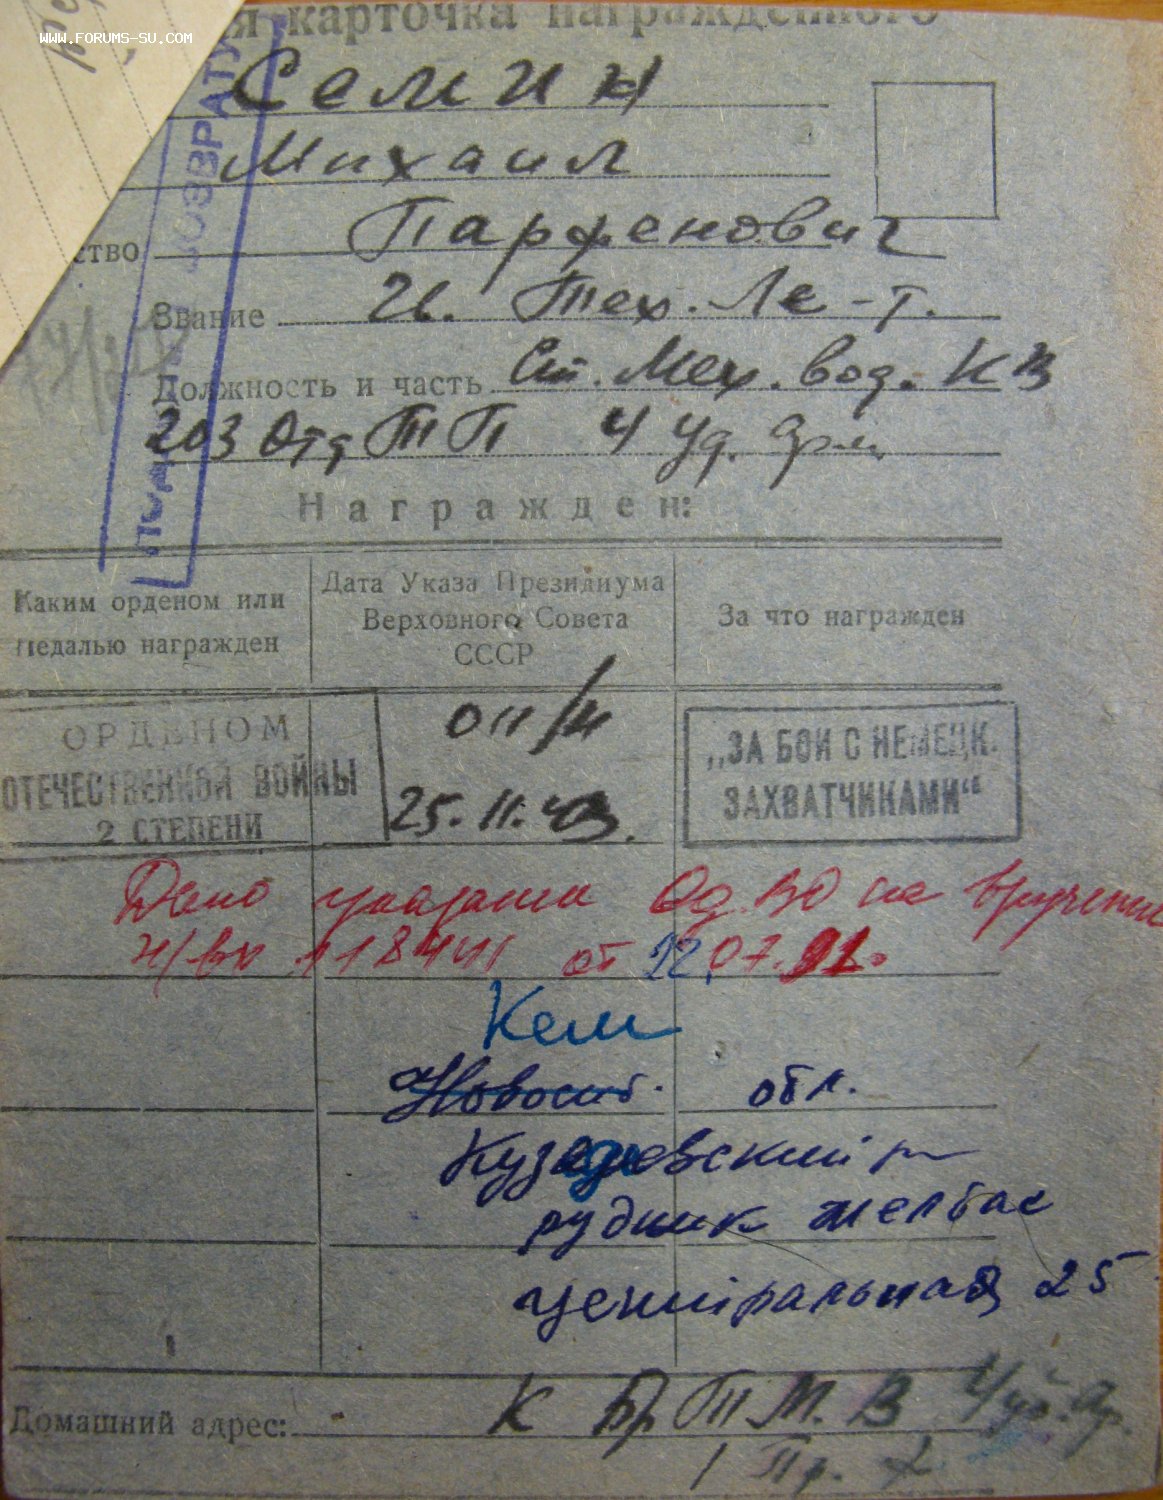 WWW.FORUMS-SU.COM
я карточка награжденного
Семин
Михаил
ство Парфенович
Звание Гв. Тех. Ле-т.
Должность и часть Ст. Мех. вод. КВ
203 Отд ТП 4 Уд. Арм.
ВОЗВРАТУ
Награжден:
Каким орденом или медалью награжден
Дата Указа Президиума Верховного Совета СССР
За что награжден
ОРДЕНОМ ОТЕЧЕСТВЕННОЙ ВОЙНЫ 2 СТЕПЕНИ
011/н
25.11.43.
„ЗА БОИ С НЕМЕЦК. ЗАХВАТЧИКАМИ“
Дано указание Од.ВО на вручение
от 12.07.91г
Кем
Новосиб. обл.
Кузедеевский р-н
рудник
центральная 25
Домашний адрес: К Бр ТМ. В